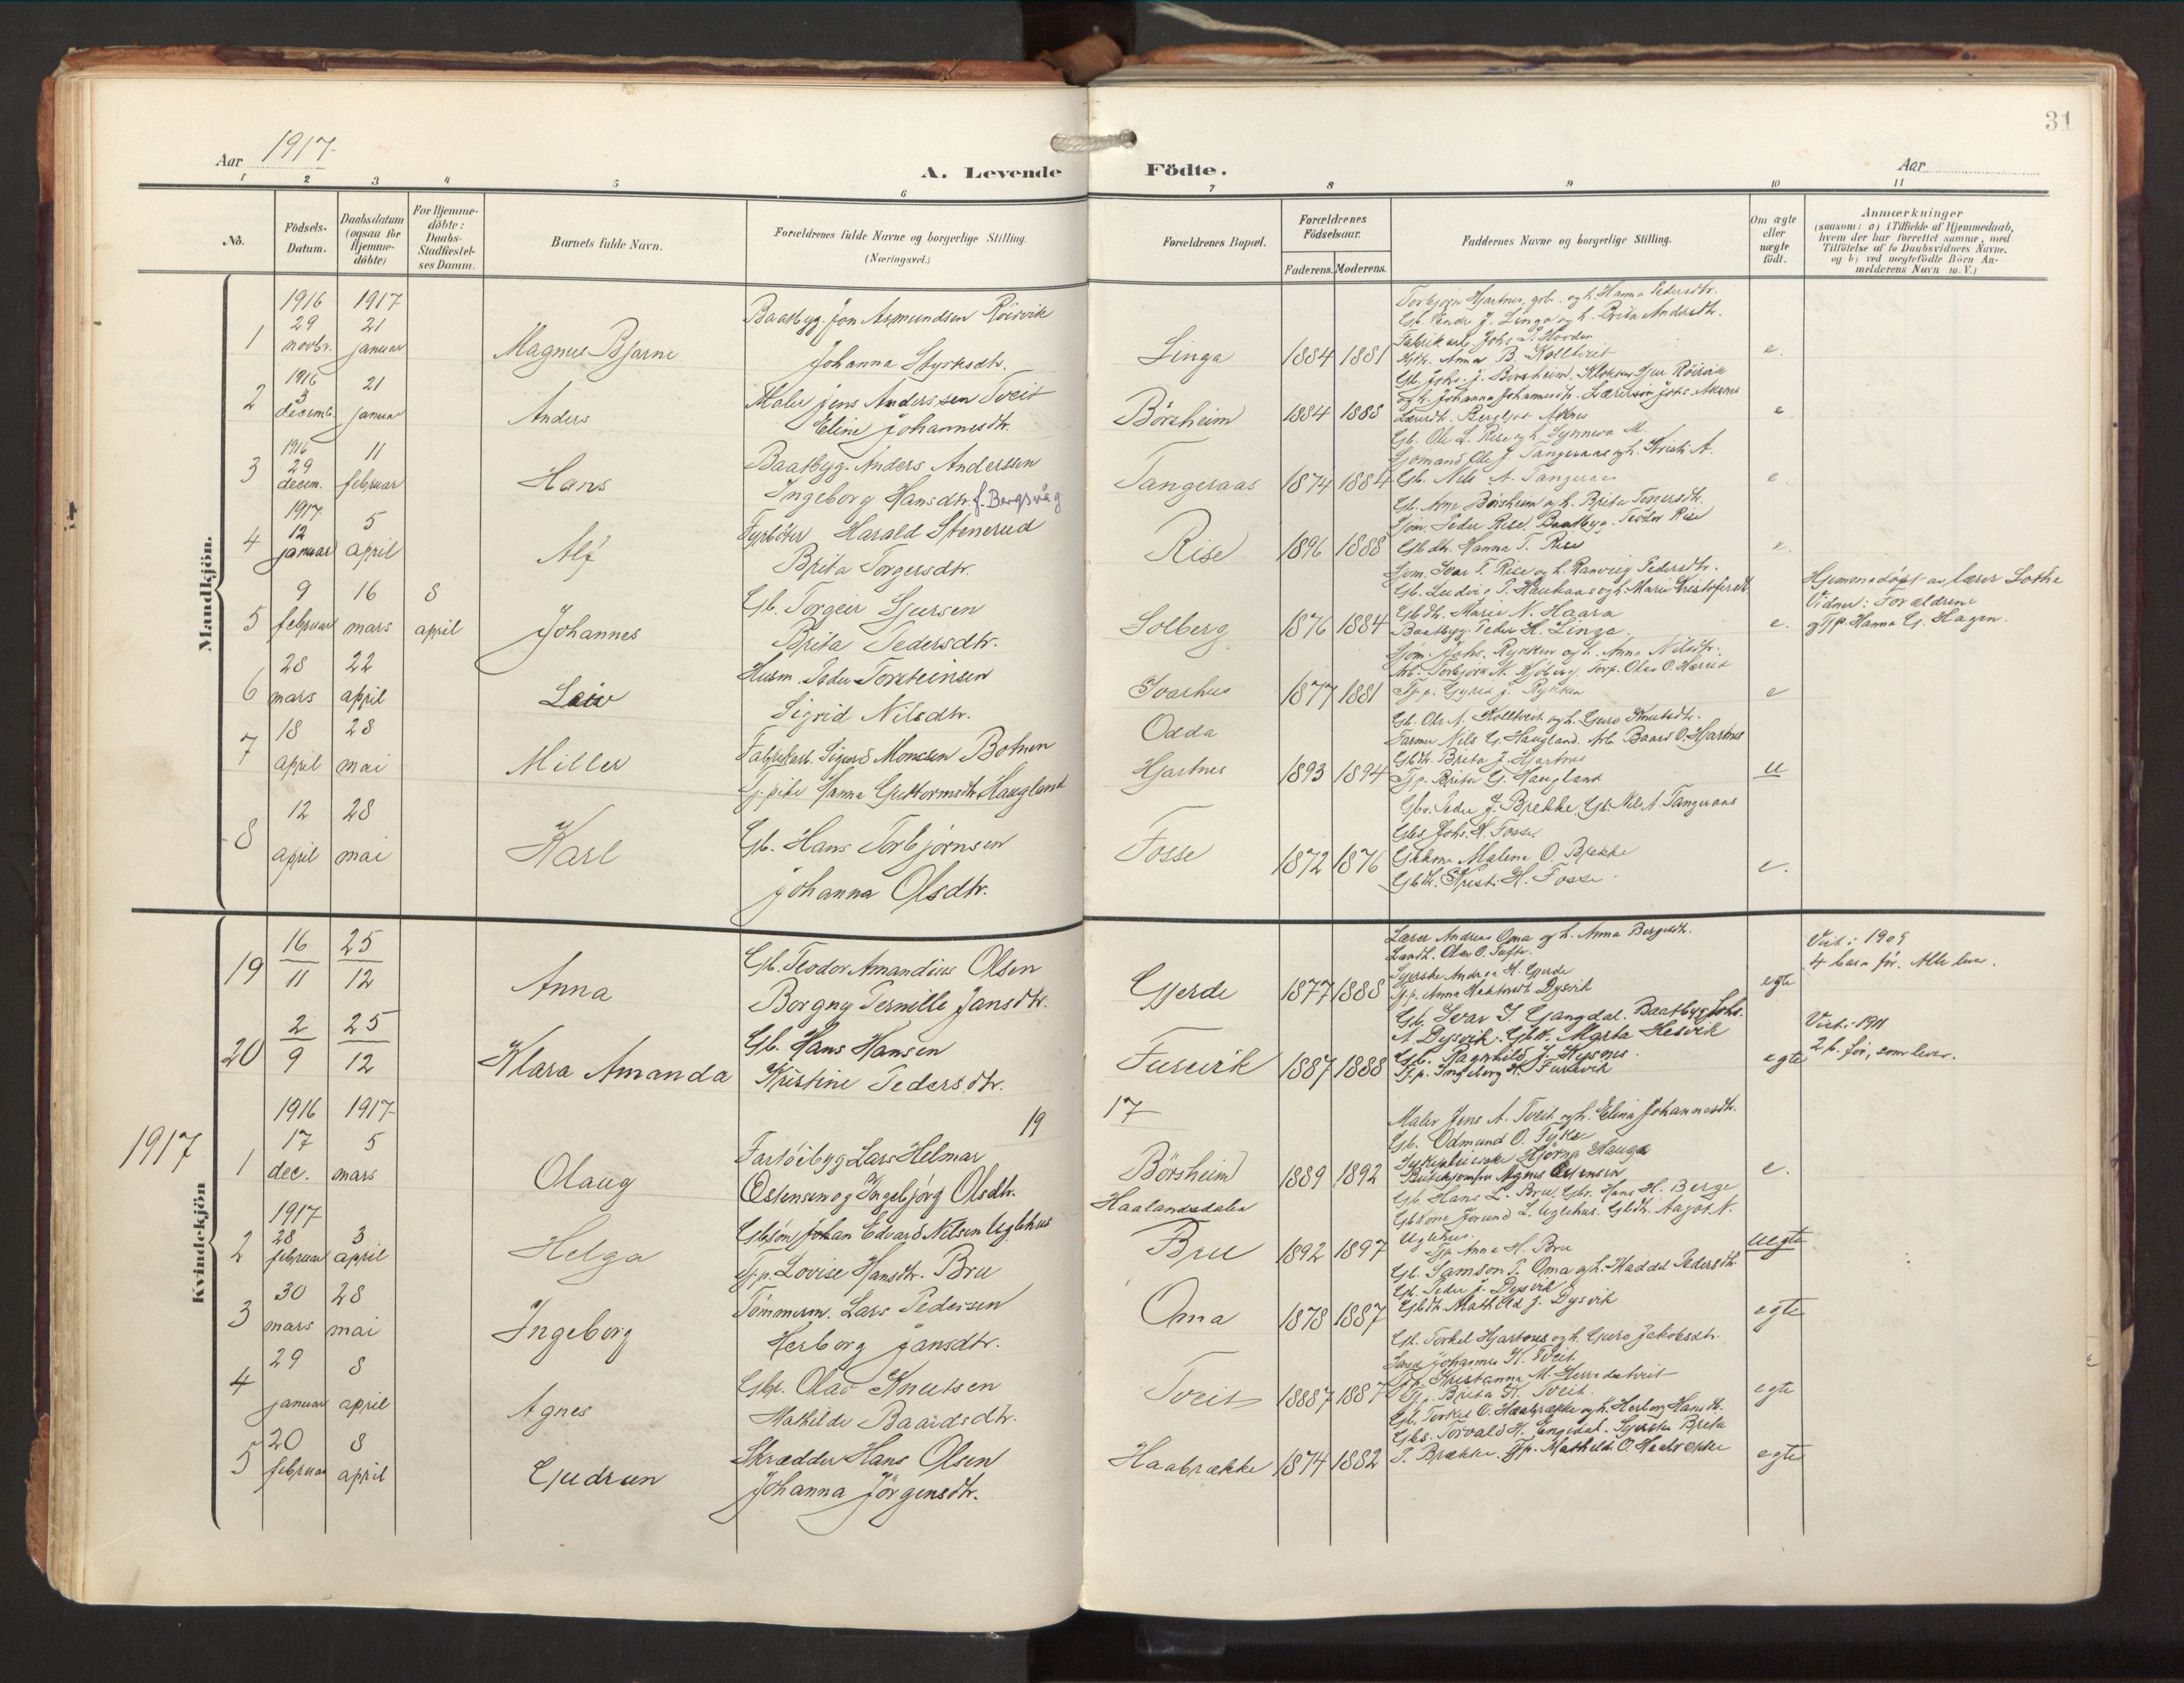 31
Aar 1917.
A. Levende Födte.
Aar
1 2 3 4 5 6 7 8 9 10 11
No.
Födsels-Datum.
Daabsdatum (ogsaa for Hjemme-döbte)
For Hjemme-döbte: Daabs-Stadfæstel-ses Datum.
Barnets fulde Navn.
Forældrenes fulde Navne og borgerlige Stilling. (Næringsvei.)
Forældrenes Bopæl.
Forældrenes Födselsaar.
Faderens. Moderens.
Faddernes Navne og borgerlige Stilling.
Om ægte eller uægte födt.
Anmærkninger
(saasom: a) i Tilfælde af Hjemmedaab,
hvem der har forrettet samme, med
Tilföielse af to Daabsvidners Navne,
og b) ved uægtefödte Börn An-
melderens Navn m. V.)
Mandkjön.
1916 1917
1 29 novbr. 21 januar
Magnus Bjarne
Baatbyg. Jon Asmundsen Röirvik
Johanna Styrksdtr.
Linga 1884 1881
Torbjörn Hjartnes, gbr. og h. Hanna Pedersdtr.
Gb. Endr J. Linga og h. Brita Andersdtr.
Anna B. Kolltveit
e.
1916
2 3 decemb. 21 januar
Anders
Maler Jens Anderssen Tveit
Eline Johannesdtr.
Börsheim 1884 1888
Gb. Johs. J. Börsheim.
og h. Johanna Johannesdtr.
e
1916
3 29 decem. 11 februar
Hans
Baatbyg. Anders Anderssen
Ingeborg Hansdtr. f. Bergsvåg
Tangeraas 1874 1884
Gb. Ole L. Rise og h. Synneva M.
Sjömand Ole J. Tangeraas og h. Kristi A.
Gb. Nils A. Tangeraas
e
1917
4 12 januar 5 april
Alf
Fyrböter Harald Stenerud
Brita Torgersdtr.
Rise 1896 1888
Börsheim og h. Brita
Sjöm. Peder Rise. Baatbyg. Teodor Rise
Gbdtr. Hanna T. Rise
e.
5 9 februar 16 mars 8 april
Johannes
Gb. Torgeir Sjursen
Brita Pedersdtr.
Solberg 1876 1884
Sjöm. Ivar T. Rise og h. Ranveig Pedersdtr.
Gb. Ludvig P. Haukaas og h. Marie Kristofersdtr.
Gbdtr. Marie N. Haara
Baatbyg. Peder H. Linga.
e.
Hjemmedöpt av lærer Lothe
Vidner: Forældrene
og Tjp. Hanna G. Hagen.
6 28 mars 22 april
Leiv
Husm. Peder Torsteinsen
Sigrid Nilsdtr.
Ivarhus 1877 1881
Sjöm. Johs. Rykken og h. Anna Nilsdtr.
Tjp. Gyrid J. Rykken
e
7 18 april 28 mai
Miller
Fabrikarb. Sigurd Monsen Botnen
Tj. pike Hanna Guttormsdtr. Haugland
Odda
Hjartnes 1893 1894
Gb. Ole A. Kolltveit og h. Guro Knutsdtr.
Farmer Nils G. Haugland. Arb. Baard O. Hjartnes
Gbdtr. Brita J. Hjartnes
Tjp. Brita G. Haugland
u
8 12 april 28 mai
Karl
Gb. Hans Torbjörnsen
Johanna Olsdtr.
Fosse 1872 1876
Gbr. Peder J. Brekke, Gb. Nils A. Tangeraas
Gbs. Johs. H. Fosse.
Gbkone Malena O. Brekke
Gbdtr. Kristi H. Fosse
e.
Kvindekjön
19 16/11 25/12
Anna
Gb. Teodor Amandius Olsen
Borgny Pernille Jansdtr.
Gjerde 1877 1888
Lærer Andreas Oma og h. Anna Bergesdtr.
Syerske Andrea H. Gjerde
Tj.p. Anna Dysvik
egte
Viet i 1909
4 barn för. Alle lever.
20 2/9 25/12
Klara Amanda
Gb. Hans Hansen
Kristine Pedersdtr.
Furevik 1887 1888
Gb. Ivar I. Gangdal. Baatbyg Johs.
A. Dysvik. Gbk. Marta Hesvik
Gb. Ragnhild J.
Tj.p. Ingeborg H. Furevik
egte
Viet i 1911
2 b. för, som lever.
1916 1917 19 17
1917
1 17 dec. 5 mars
Olaug
Fartöibyg Lars Helmar
Östensen og Ingebjörg Olsdtr.
Börsheim 1889 1892
Maler Jens A. Tveit og h. Elina Johannesdtr.
Gb. Odmund O. Fykse
e.
1917
2 28 februar 3 april
Helga
Gbsön Johan Edvard Nilsen Uglehus
Tj.p. Lovise Hansdtr. Bru
Haalandsdalen
Bru 1892 1897
Gb. Hans L. Bru, Gbr. Hans H. Berge
Gbkone Jorund L. Uglehus. Gbdtr. Aagot N.
Uglehus.
Tjp. Anna H. Bru
uegte
3 30 mars 28 mai
Ingeborg
Tömmerm. Lars Pedersen
Herborg Jansdtr.
Oma 1878 1887
Gb. Samson P. Oma og h. Maddel Pedersdtr.
Gb. Peder J. Dysvik
Gbdtr. Mathilda J. Dysvik
egte
4 29 januar 8 april
Agnes
Gbr. Olav Knutsen
Mathilde Baardsdtr.
Tveit 1887 1887
Gb. Torkel Hjartnes og h. Guro Jakobsdtr.
Johannes K. Tveit.
Tjp. Kristanna M.
Tj. Brita K. Tveit.
egte
5 20 februar 8 april
Gudrun
Skrædder Hans Olsen
Johanna Jörgensdtr.
Haabrække 1874 1882
Gb. Torkel O. Haabrække og h. Herborg Hansdtr.
Gbs. Torvald H. Engedal. Syerske Brita
P. Brække. Tjp. Mathilde O. Haabrække
egte